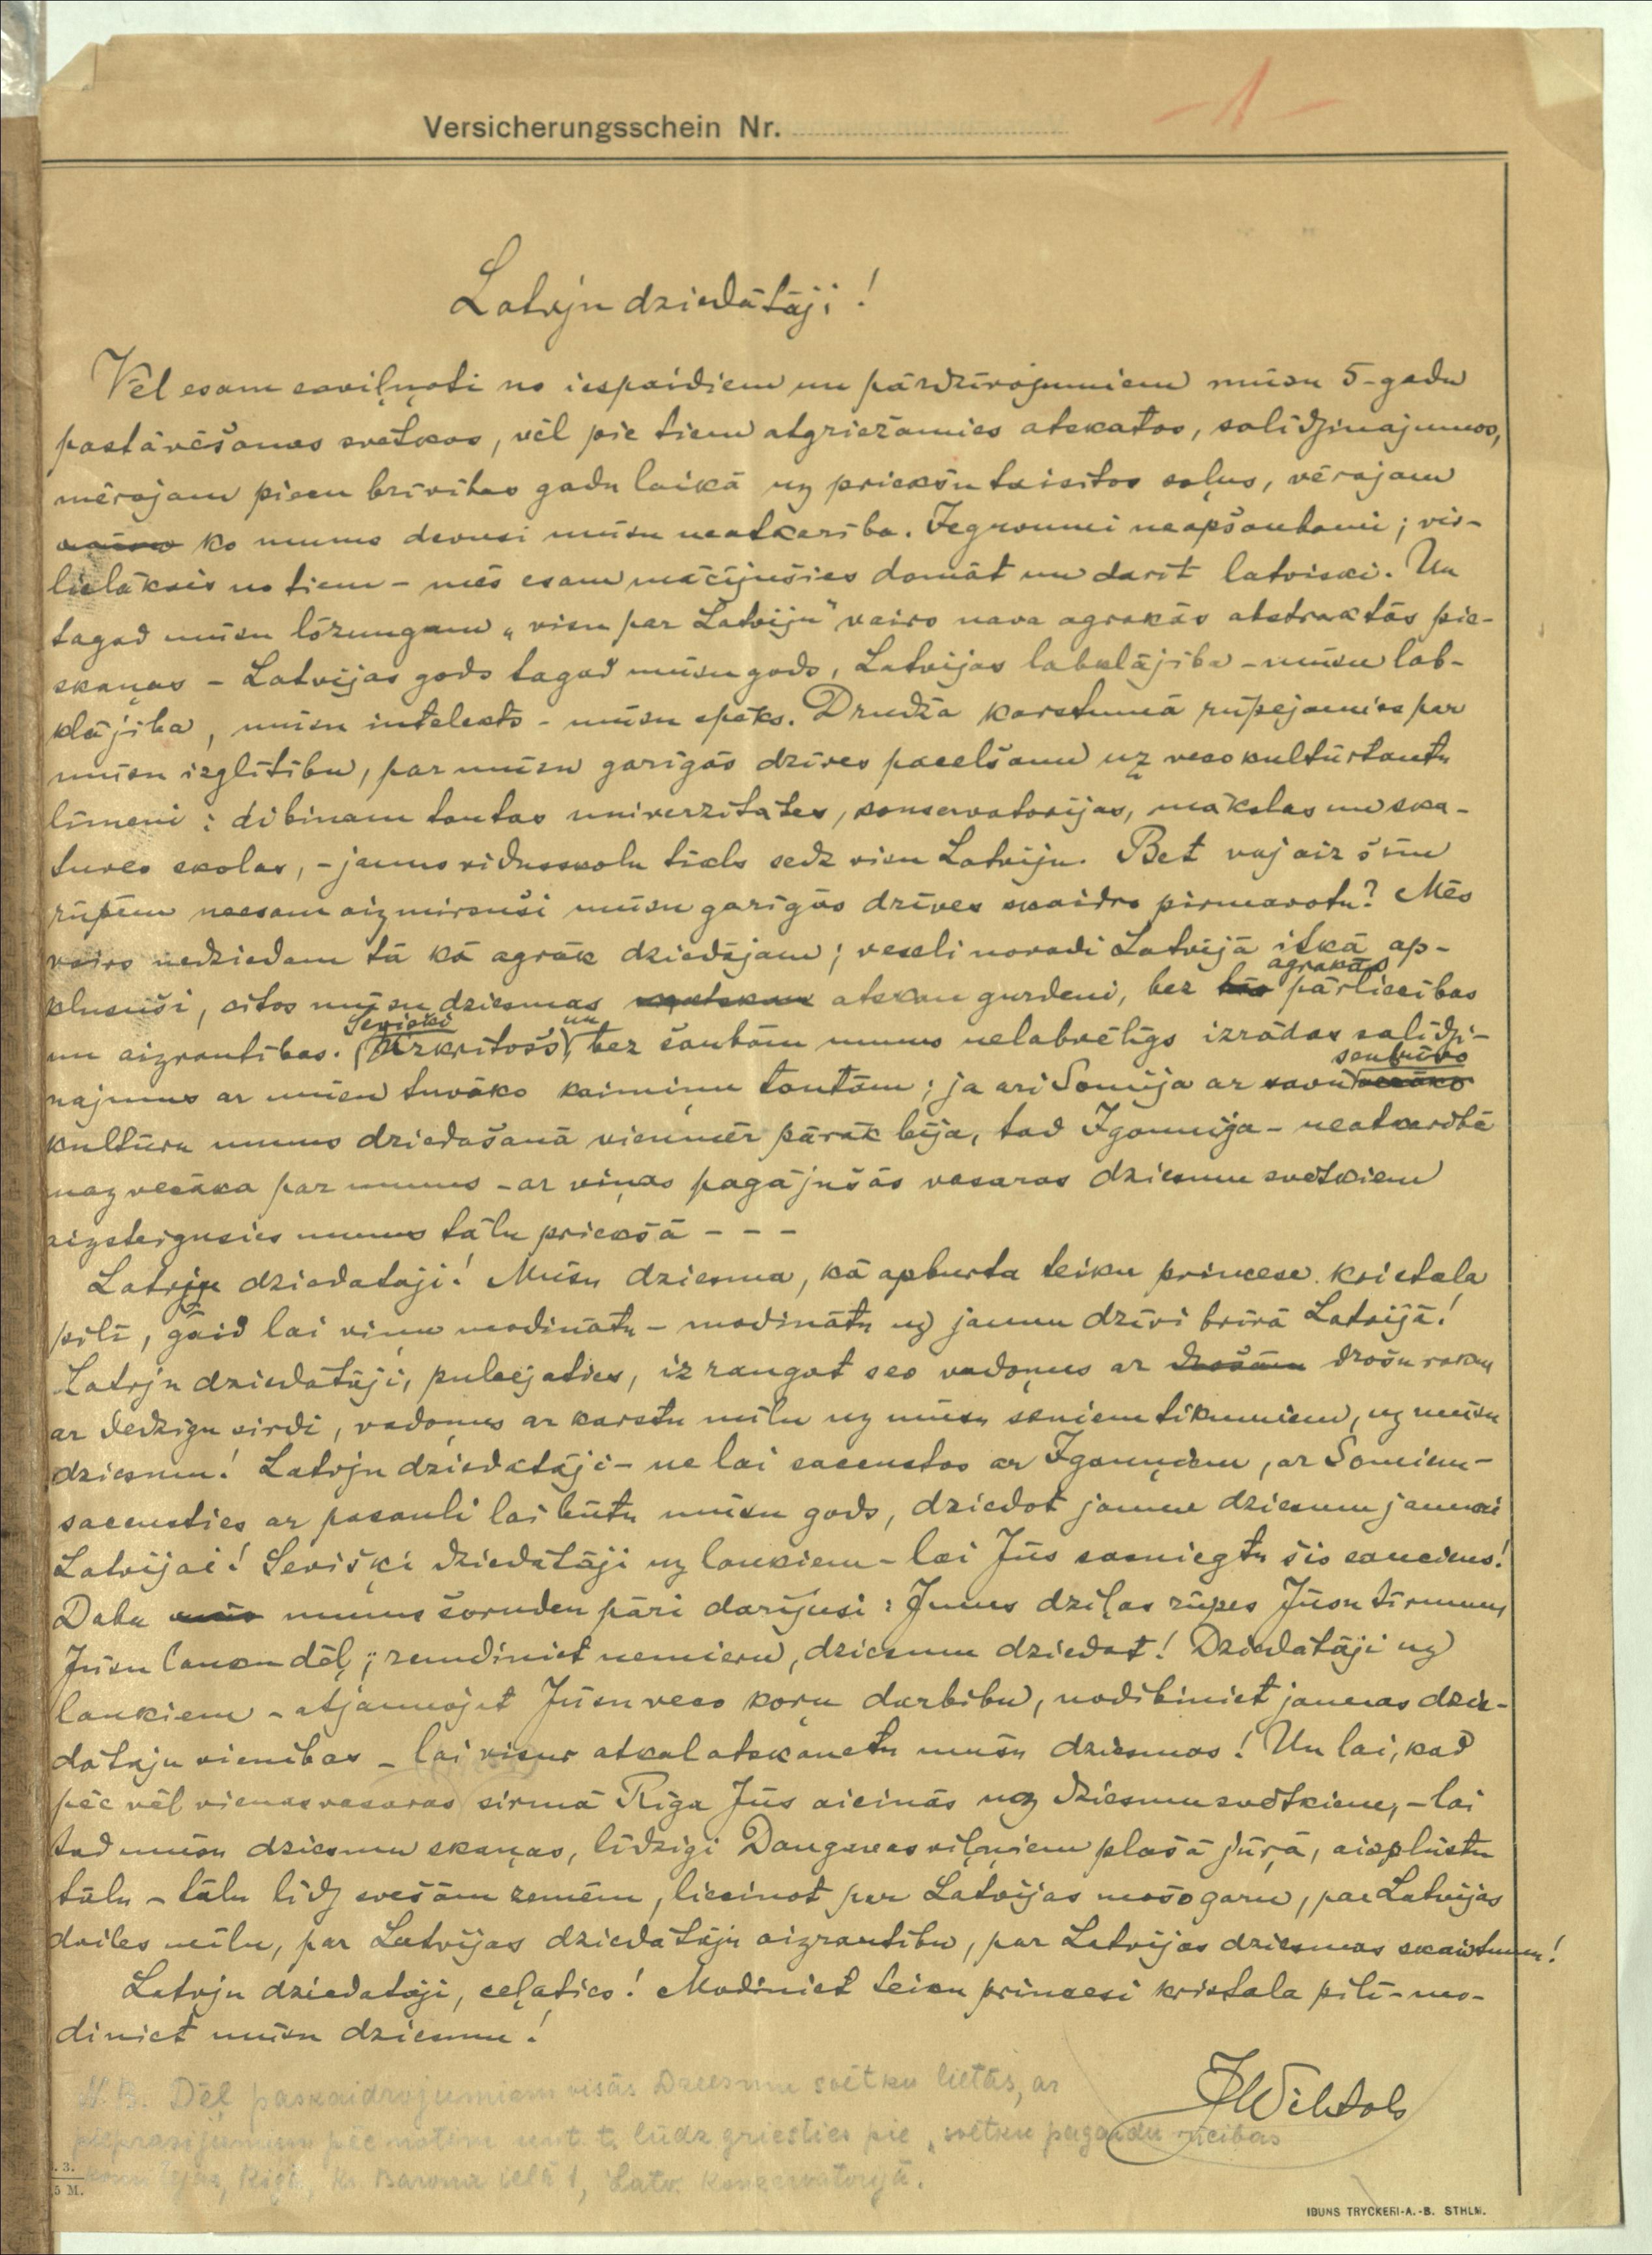 -1-
Versicherungsschein Nr.
Latvju dziedātāji!
Vēl esam saviļņoti no iespaidiem un pārdzīvojumiem mūsu 5-gadu
pastāvēšanas svētkos, vēl pie tiem atgriežamies atskatos, salīdzinājumos,
mērojam piecu brīvības gadu laikā uz priekšu taisītos soļus, vērojam
ko mums devusi mūsu neatkarība. Ieguvumi neapšaubami; vis-
lielākais no tiem - mēs esam mācījušies domāt un darīt latviski. Un
tagad mūsu lōzungam „visu par Latviju" vairs nava agrakās abstraktās pie-
skaņas - Latvijas gods tagad mūsu gods, Latvijas labklājība - mūsu lab-
klājība, mūsu intelekts - mūsu spēks. Drudža karstumā rūpejamies par
mūsu izglītību, par mūsu garīgās dzīves pacelšanu uz veco kultūrtautu
līmeni: dibinam tautas univerzitātes, konservatorijas, mākslas un ska-
tuves skolas, - jauns vidusskolu tīkls sedz visu Latviju. Bet vaj aiz šīm
rūpēm neesam aizmirsuši mūsu garīgās dzīves skaidro pirmavotu? Mēs
vairs nedziedam tā kā agrāk dziedājam; veseli novadi Latvijā itkā ap-
klusuši, citos mūsu dziesmas atskan gurdeni, bez agrakās pārliecības
un aizrautības. Sevišķi (Uzkrītoši) un bez šaubām mums nelabvēlīgs izrādas salīdzi-
najums ar mūsu tuvāko kaimiņu tautām; ja arī Somija ar savu senbūvo
kultūru mums dziedašanā vienmēr pārāk bija, tad Igaunija - neatkarībē
maz vecāka par mums - ar viņas pagājušās vasaras dziesmu svētkiem
aizsteigusies mums tālu priekšā - - -
Latvju dziedataji! Mūsu dziesma, kā apburta teiku princese kristala
pilī, gaid lai viņu modinātu - modinātu uz jaunu dzīvi brīvā Latvijā!
Latvju dziedātāji, pulcējaties, izraugat sev vadoņus ar drošu roku,
ar dedzīgu sirdi, vadoņus ar karstu mīlu uz mūsu seniem tikumiem, uz mūsu
dziesmu! Latvju dziedātāji - ne lai sacenstos ar Igauņiem, ar Somiem -
sacensties ar pasauli lai būtu mūsu gods, dziedot jaunu dziesmu jaunai
Latvijai! Sevišķi dziedātāji uz laukiem - lai Jūs sasniegtu šis sauciens!
Daba mums šoruden pāri darījusi: Jums dziļas rūpes Jūsu tīrumu,
Jūsu lauku dēļ; remdiniet nemieru, dziesmu dziedat! Dziedātāji uz
laukiem - atjaunojat Jūsu veco koŗu darbību, nodibiniet jaunas dzie-
dātāju vienības - lai visur atkal atskanetu mūsu dziesmas! Un lai, kad
pēc vēl vienas vasaras sirmā Rīga Jūs aicinās uz dziesmu svētkiem, - lai
tad mūsu dziesmu skaņas, līdzigi Daugavas viļņiem plašā jūŗā, aizplūstu
tālu - tālu līdz svešām zemēm, liecinot par Latvijas mošo garu, par Latvijas
dailes mīlu, par Latvijas dziedātāju aizrautību, par Latvijas dziesmas skaistumu!
Latvju dziedataji, ceļaties! Modiniet teiku princesi kristala pilī - mo-
diniet mūsu dziesmu!
JWihtols
N.B. Dēļ paskaidrojumiem visās Dziesmu svētku lietās, ar
pieprasijumiem pēc notīm u.t.t. lūdz griesties pie „svētku pagaidu rīcibas
komitejas, Rīgā, Kr. Barona ielā 1, Latv. Konservatorijā.
. 3.
5 M.
IDUNS TRYCKERI-A.-B. STHLM.